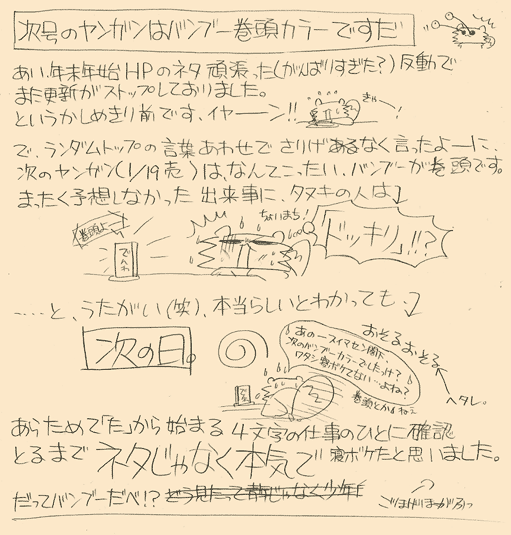 次号のヤンガンはバンブー巻頭カラーですだ
あい、年末年始HPのネタ頑張った(がんばりすぎた?)反動で
また更新がストップしておりました。
というかしめきり前です、イヤーン!!
きゃー!
で、ランダムトップの言葉あわせでさりげあるなく言ったよーに、
次のヤンガン(1/19売)は、なんてこったい、バンブーが巻頭です。
まったく予想しなかった出来事に、タヌキの人は↓
巻頭よ
でんわ
ちょいまち!
「ドッキリ」!!?
……と、うたがい(笑)、本当らしいとわかっても、↓
次の日。
あの…スイマセン閣下、
次のバンブーカラーでしたっけ?
ワタシ寝ボケてない…よね?
巻頭とかよねぇ
おそるおそる
ヘタレ。
あらためて「た」から始まる4文字の仕事のひとに確認
とるまでネタじゃなく本気で寝ボケたと思いました。
だってバンブーだべ!?どう見たって青年じゃなく少年